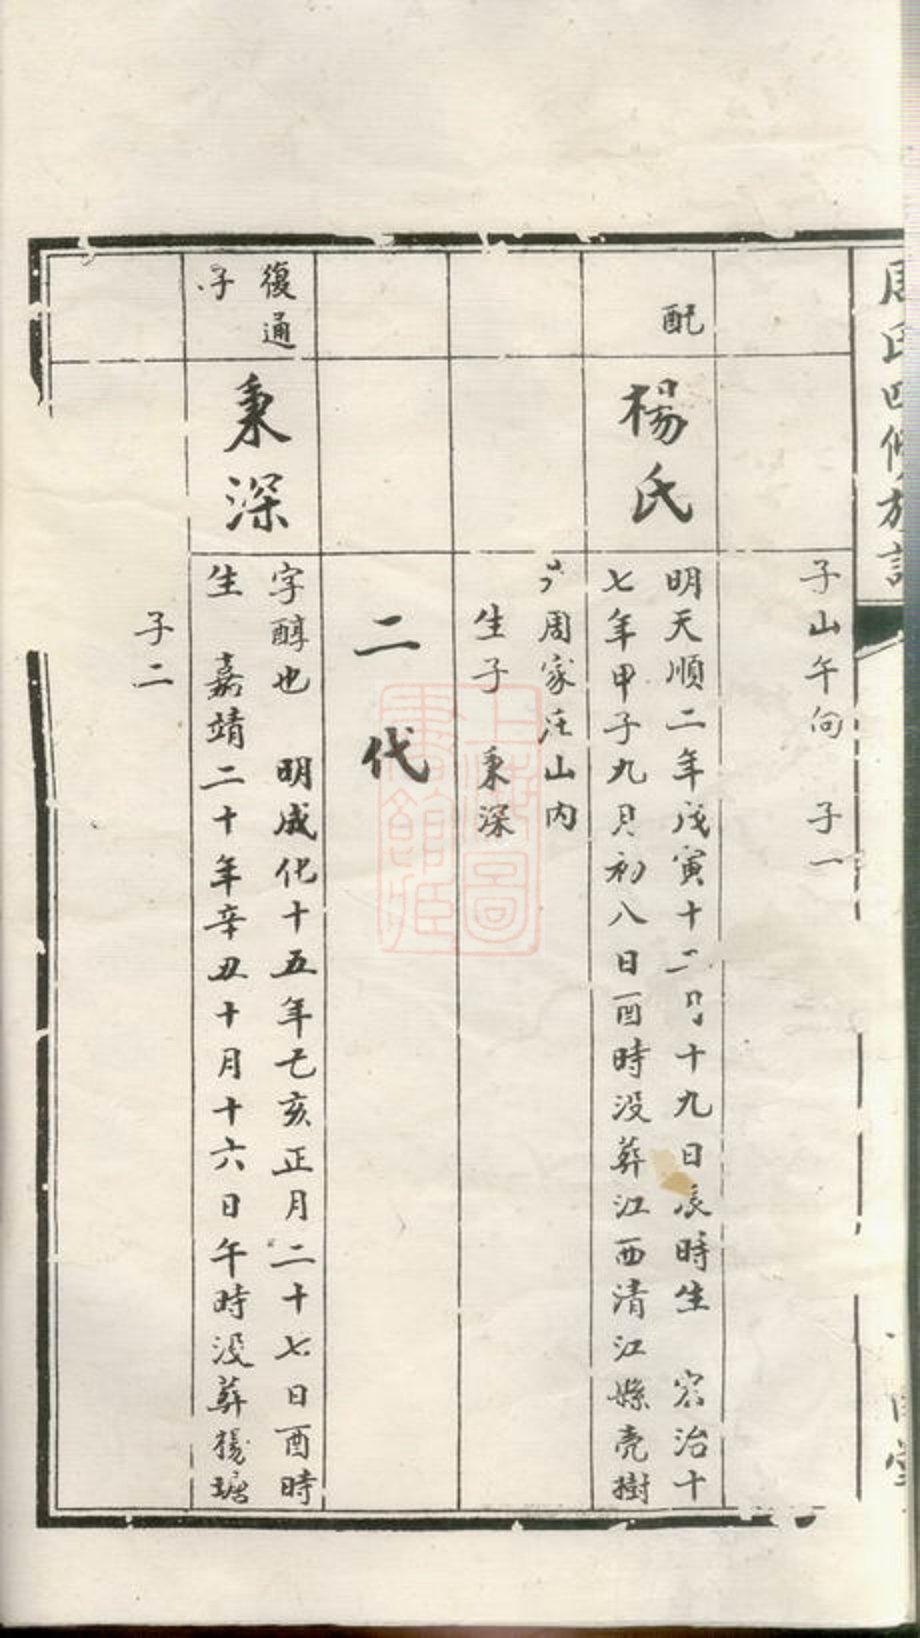 周氏四修族譜
子山午向 子一
配
楊氏
明天順二年戊寅十二月十九日辰時生 宏治十
七年甲子九月初八日酉時没葬江西清江縣壳樹
周家汪山内
生子 秉深
二代
復通
子
秉深
字醇也 明成化十五年乙亥正月二十七日酉時
生 嘉靖二十年辛丑十月十六日午時没葬楊塘
子二
上海圖
書館藏